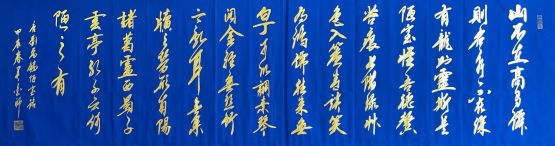 山不在高有僊
則名水不在深
有龍則靈斯是
陋室惟吾德馨
苔痕上階綠草
色入簾青談笑
有鴻儒往來無
白丁可以調素琴
閱金經無絲竹
之亂耳無案
牘之勞形南陽
諸葛廬西蜀子
雲亭孔子云何
陋之有
唐劉禹錫陋室銘
甲辰春